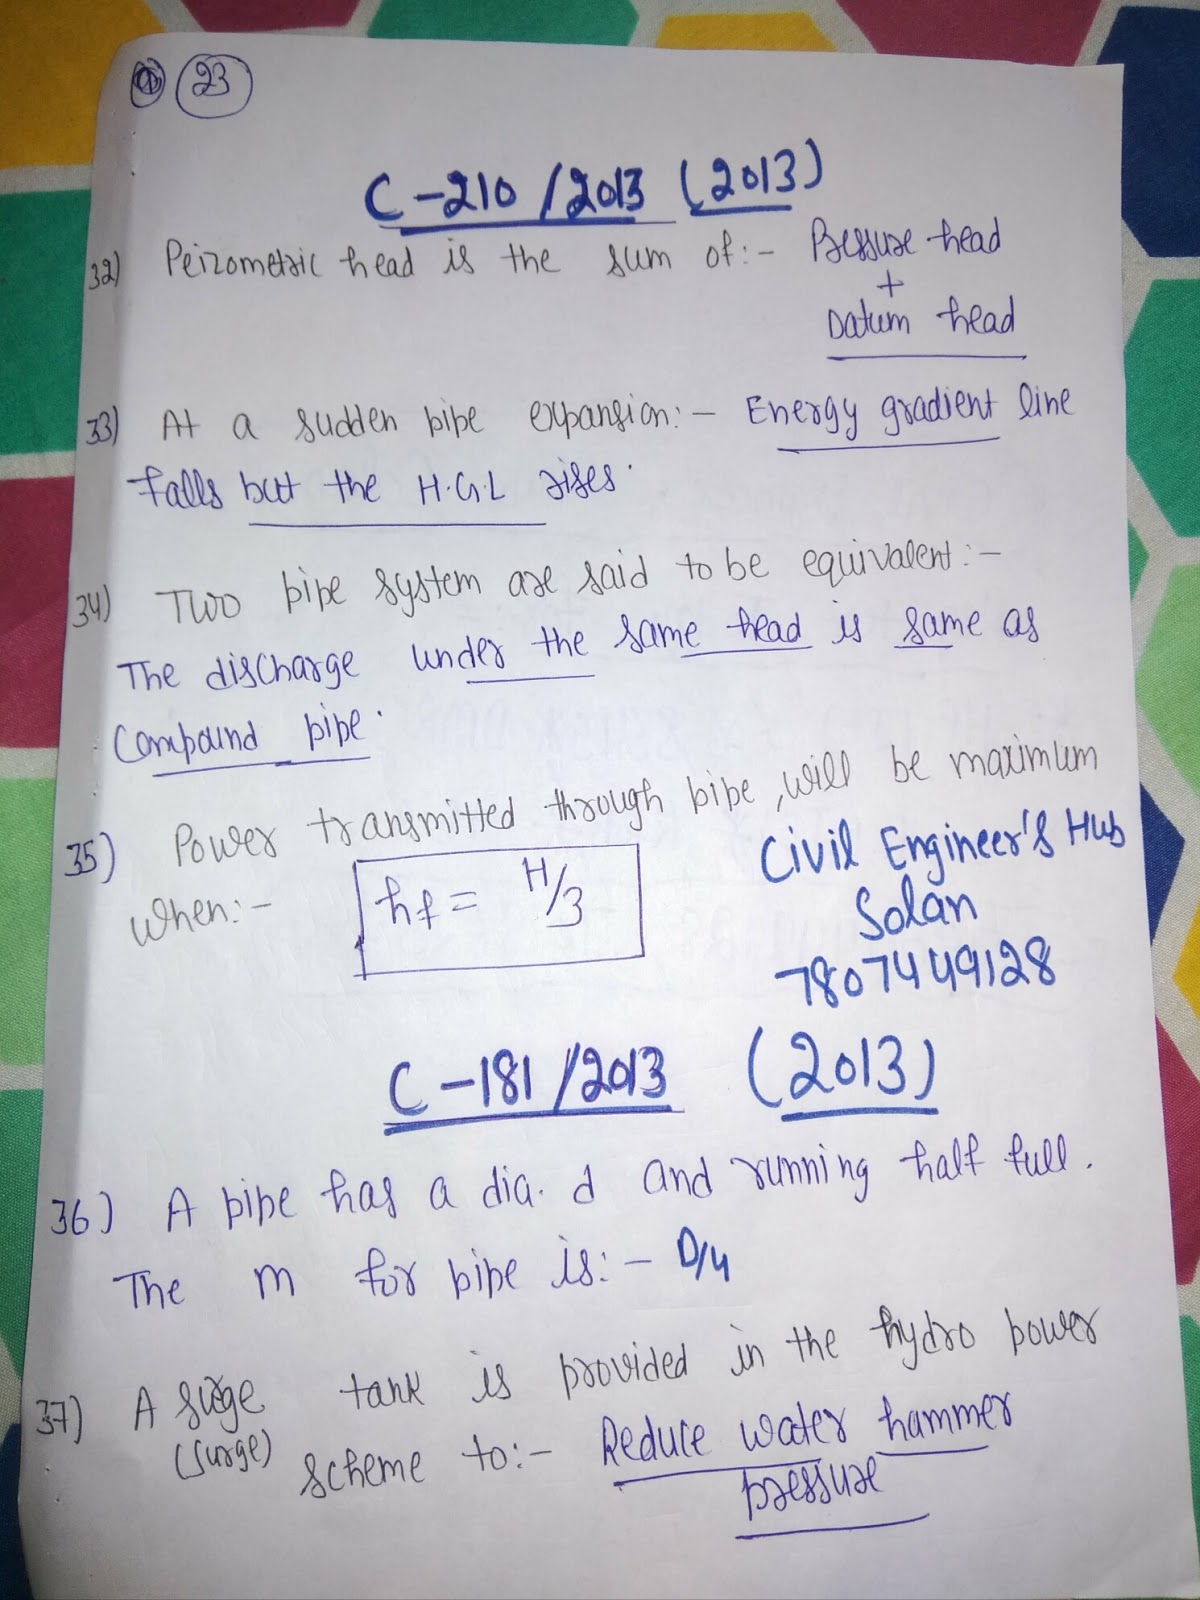 23
C-210/2013 (2013)
32) Peizometric head is the sum of:- Pressure head
+
Datum head
33) At a sudden pipe expansion:- Energy gradient line
falls but the H.G.L rises.
34) Two pipe system are said to be equivalent:-
The discharge under the same head is same as
compound pipe.
35) Power transmitted through pipe, will be maximum
when:- hf = H/3
Civil Engineer's Hub
Solan
7807449128
C-181/2013 (2013)
36) A pipe has a dia. d and running half full.
The m for pipe is:- D/4
37) A surge tank is provided in the hydro power
(surge) scheme to:- Reduce water hammer
pressure